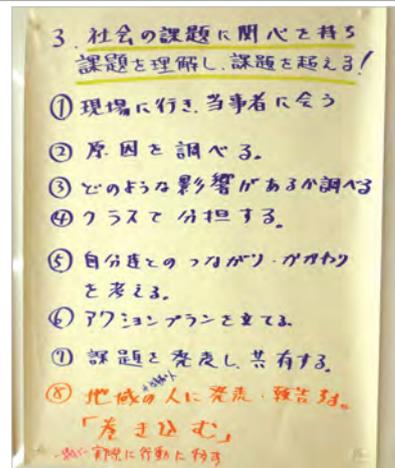 3. 社会の課題に関心を持ち
課題を理解し、課題を超える!
① 現場に行き、当事者に会う
② 原因を調べる。
③ どのような影響があるか調べる
④ クラスで分担する。
⑤ 自分達とのつながり・かかわり
を考える。
⑥ アクションプランを立てる
⑦ 課題を発表し、共有する。
⑧ 地域の人に発表・報告する。
「巻き込む」
実際に行動に移す